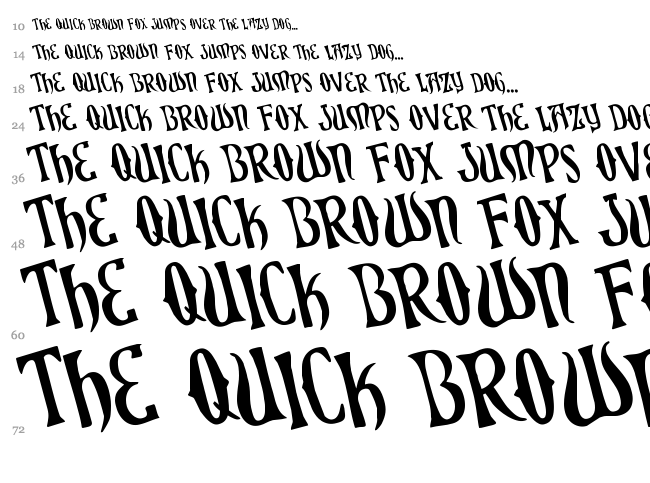 10 ThE QUICk BROWN FOX JUMPS OVER ThE LAZY DOG...
14 ThE QUICk BROWN FOX JUMPS OVER ThE LAZY DOG...
18 ThE QUICk BROWN FOX JUMPS OVER ThE LAZY DOG...
24 ThE QUICk BROWN FOX JUMPS OVER ThE LAZY DOG
36 ThE QUICk BROWN FOX JUMPS OVE
48 ThE QUICk BROWN FOX JU
60 ThE QUICk BROWN FO
72 ThE QUICk BROWN